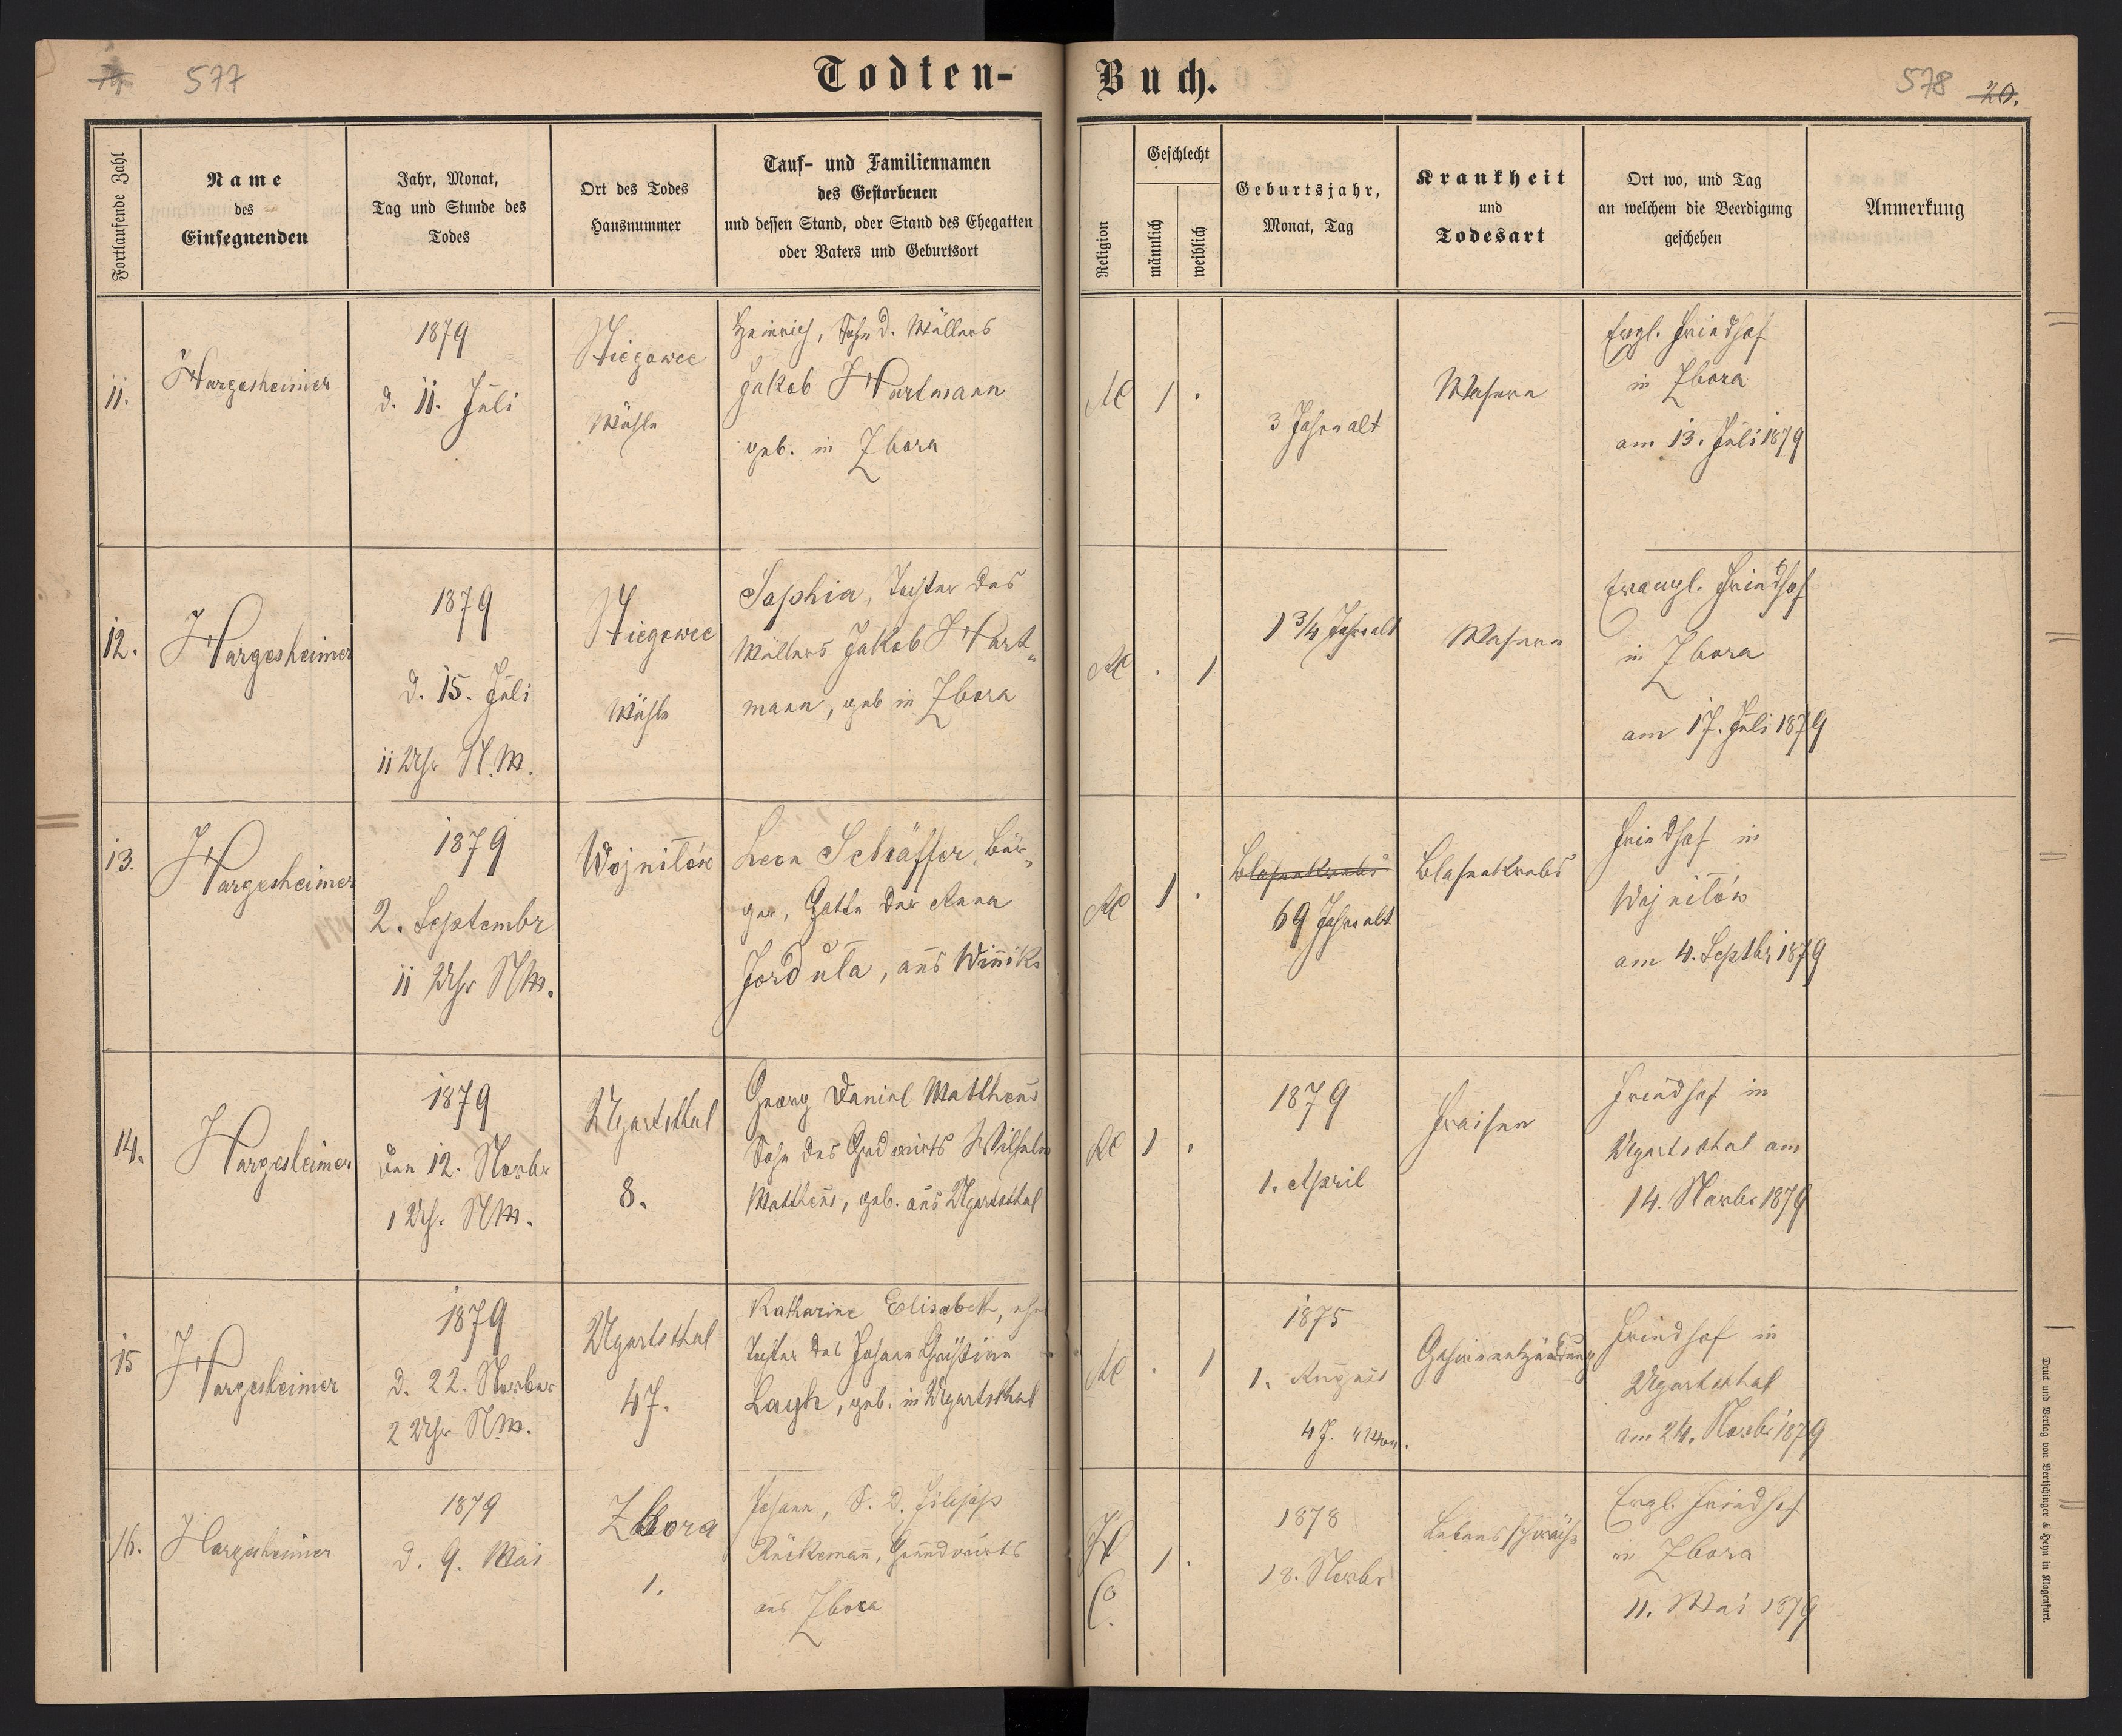 577
Todten-
Buch.
578 20.
Fortlaufende Zahl
Name
des
Einsegnenden
Jahr, Monat,
Tag und Stunde des
Todes
Ort des Todes
Hausnummer
Tauf- und Familiennamen
des Gestorbenen
und dessen Stand, oder Stand des Ehegatten
oder Vaters und Geburtsort
Religion
Geschlecht
männlich
weiblich
Geburtsjahr,
Monat, Tag
Krankheit
und
Todesart
Ort wo, und Tag
an welchem die Beerdigung
geschehen
Anmerkung
11.
Hargesheimer
1879
d. 11. Juli
Mühle
Heinrich, Sohn d. Müllers
Jakob Hartmann
geb. in Zbora
1 .
3 Jahre alt
Masern
Evgl. Friedhof
in Zbora
am 13. Juli 1879
12.
Hargesheimer
1879
d. 15. Juli
11 Uhr N.M.
Mühle
Sophia, Tochter des
Müllers Jakob Hart„
mann, geb in Zbora
. 1
1 3/4 Jahr alt
Masern
Evangl. Friedhof
in Zbora
am 17. Juli 1879
13.
Hargesheimer
1879
2. Septembr
11 Uhr NM.
Wojniłów
Leon Schäffer, Bür„
ger, Gatte der Anna
Jorduła, aus Winniki
1 .
Blasenkrebs
69 Jahre alt
Blasenkrebs
Friedhof in
Wojniłów
am 4. Septbr 1879
14.
Hargesheimer
1879
den 12. Novbr
1 Uhr NM.
Ugartsthal
8.
Georg Daniel Mattheus
Sohn des Grdwirts Wilhelm
Mattheus, geb. aus Ugartsthal
1 .
1879
1. April
Fraisen
Friedhof in
Ugartsthal am
14. Novbr 1879
15
Hargesheimer
1879
d. 22. Novber
2 Uhr N.M.
Ugartsthal
47.
Katharine Elisabeth,
Tochter des Johann Christian
geb. in Ugartsthal
. 1
1875
1. August
4 J. 4 Mon.
Gehirnentzündung
Friedhof in
Ugartsthal
am 24. Novbr 1879
16.
Hargesheimer
1879
d. 9. Mai
Zbora
1.
Johann, S. d.
Rückemann, Grundwirts
aus Zbora
H
C.
1 .
1878
18. Novbr
Lebensschwäche
Evgl. Friedhof
in Zbora
11. Mai 1879
Druck und Verlag von Bertschinger & Heyn in Klagenfurt.